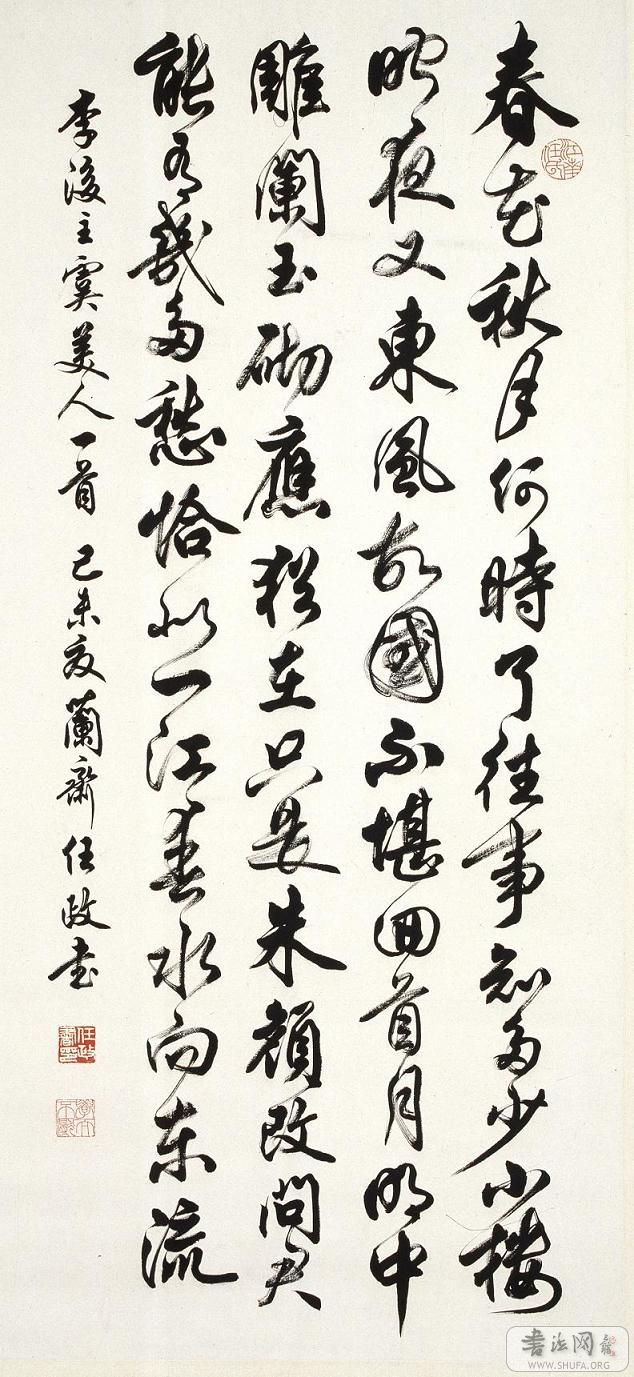 春花秋月何時了往事知多少小樓
昨夜又東風故國不堪回首月明中
雕闌玉砌應猶在只是朱顏改問君
能有幾多愁恰似一江春水向東流
李後主虞美人一首 己未夏蘭齋任政書
書法网
WWW.SHUFA.ORG